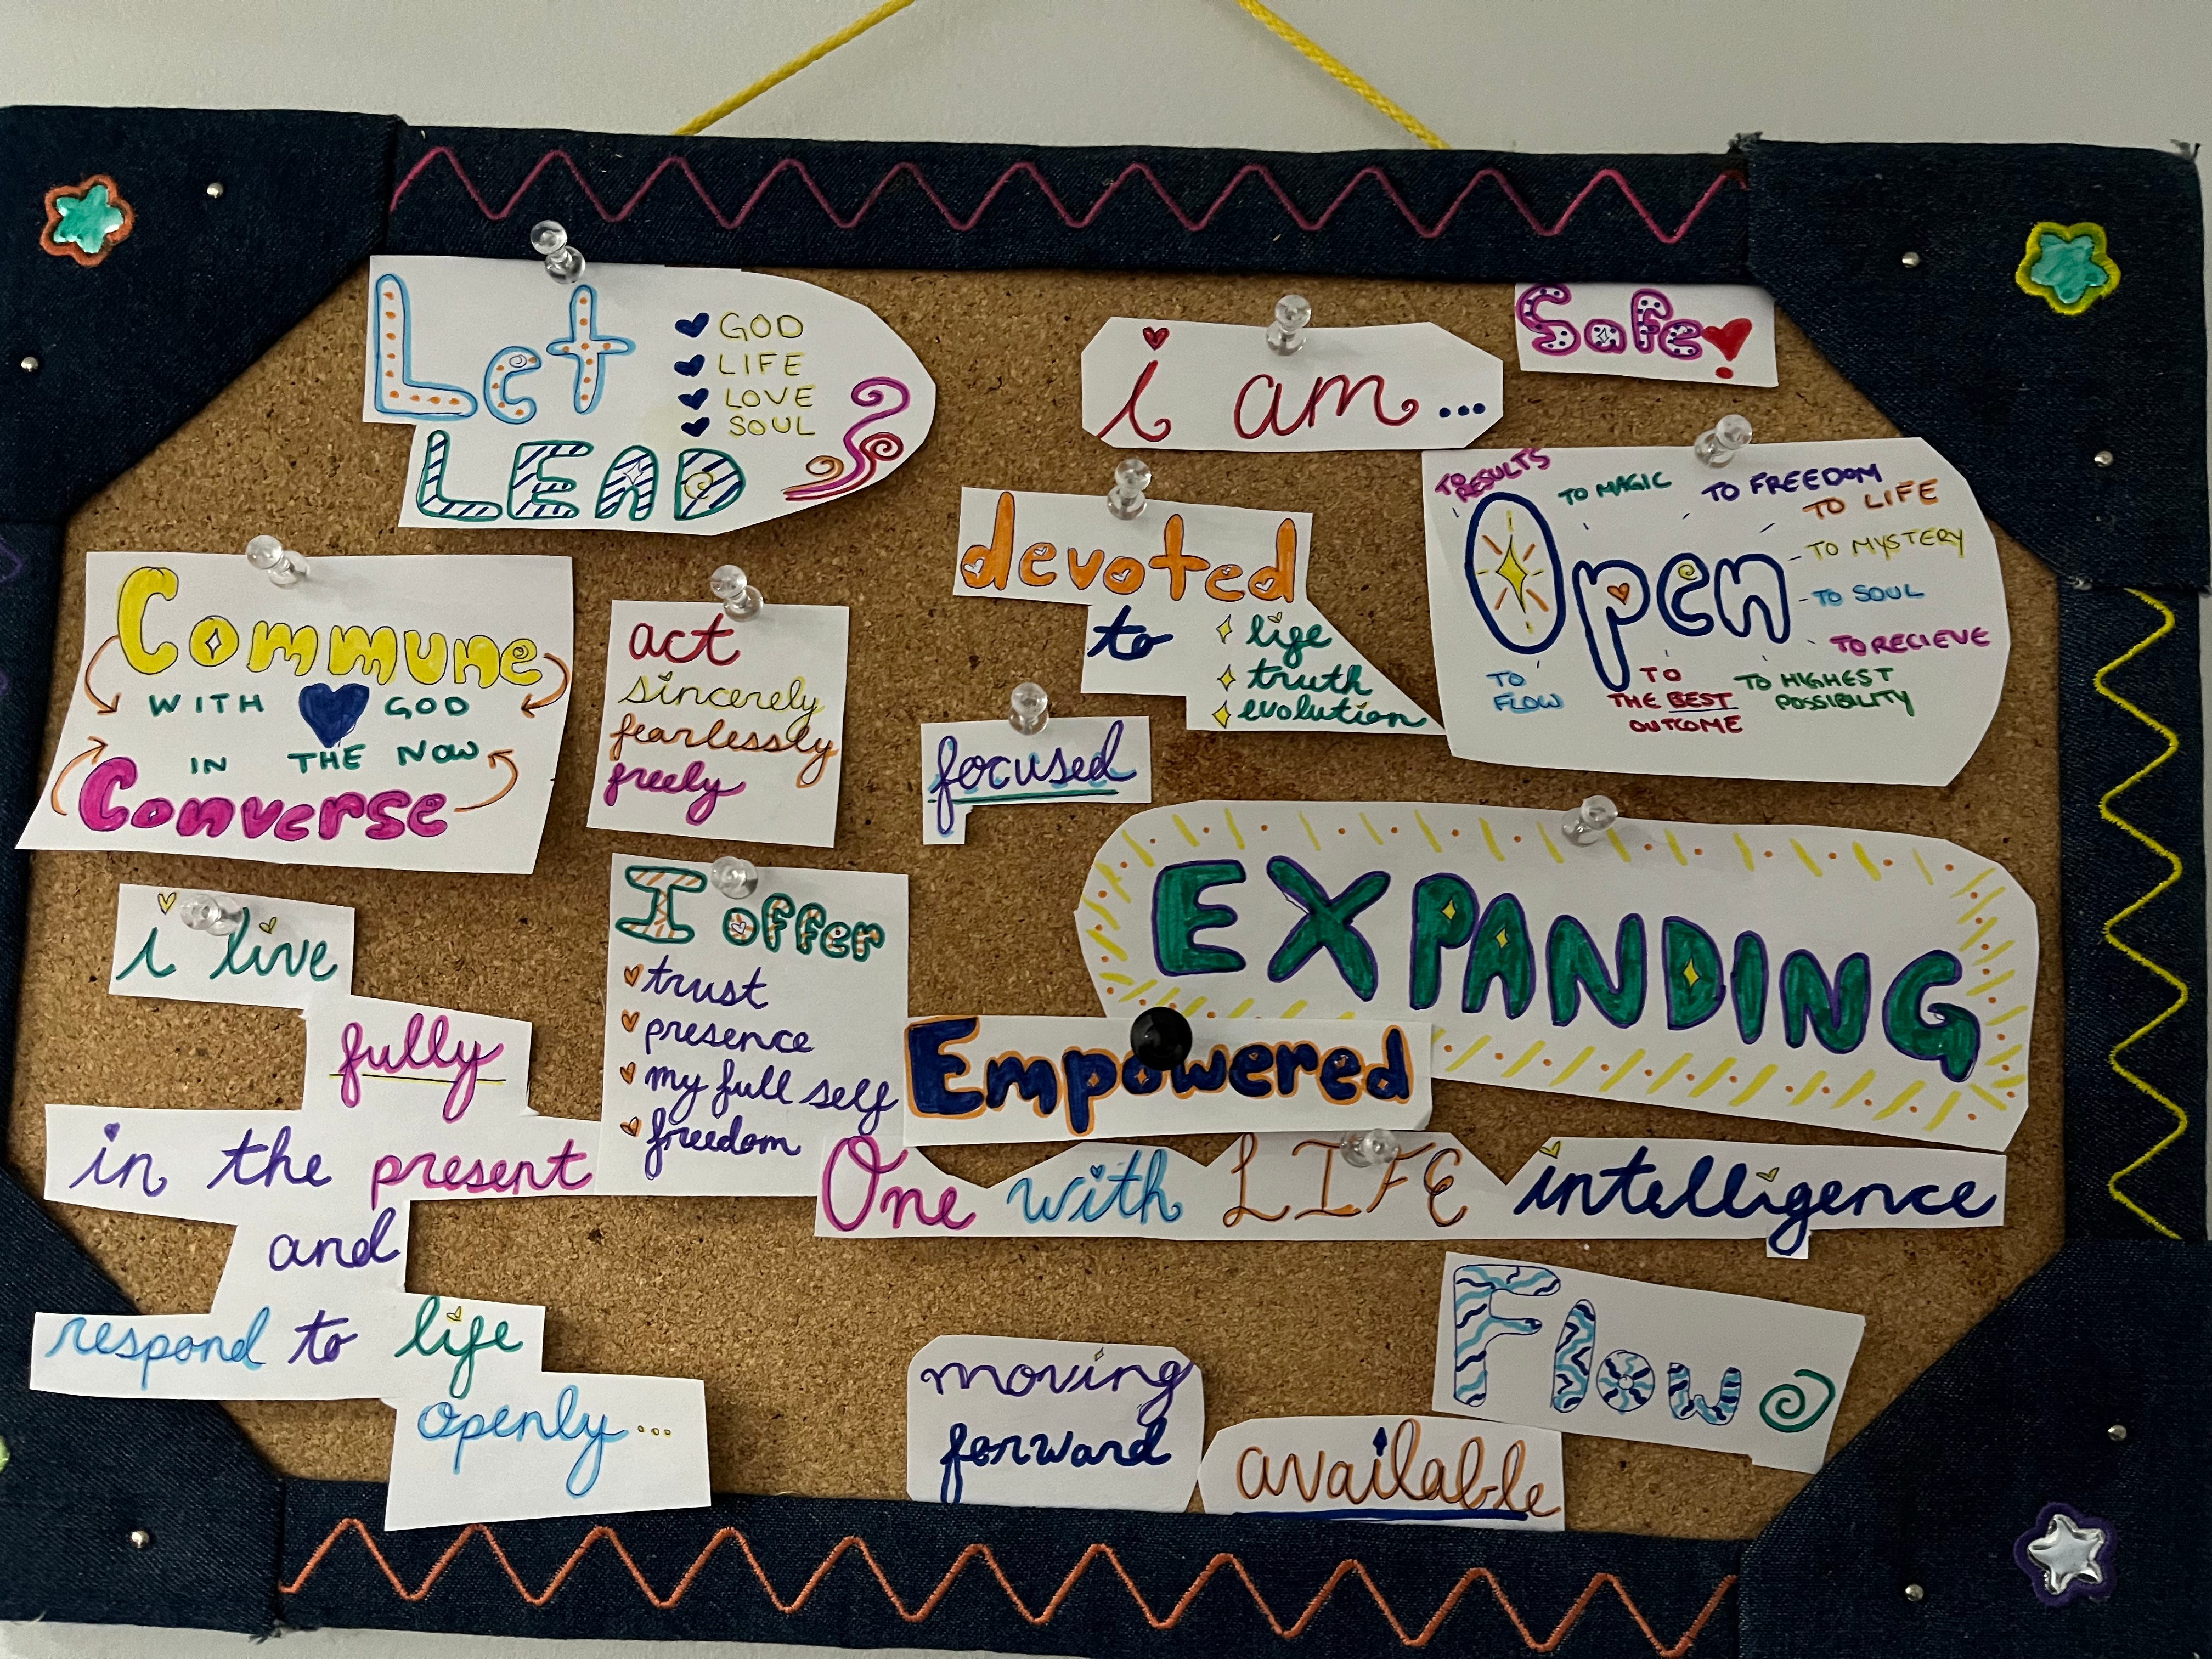 Let
GOD
LIFE
LOVE
SOUL
LEAD
i am...
Safe!
devoted
to
life
truth
evolution
TO RESULTS
TO MAGIC
TO FREEDOM
TO LIFE
TO MYSTERY
TO SOUL
TO RECIEVE
Open
TO
FLOW
TO
THE BEST
OUTCOME
TO HIGHEST
POSSIBILITY
Commune
WITH GOD
IN THE NOW
Converse
act
sincerely
fearlessly
freely
focused
EXPANDING
i live
fully
in the present
and
respond to life
openly...
I offer
trust
presence
my full self
freedom
Empowered
One with LIFE intelligence
Flow
moving
forward
available